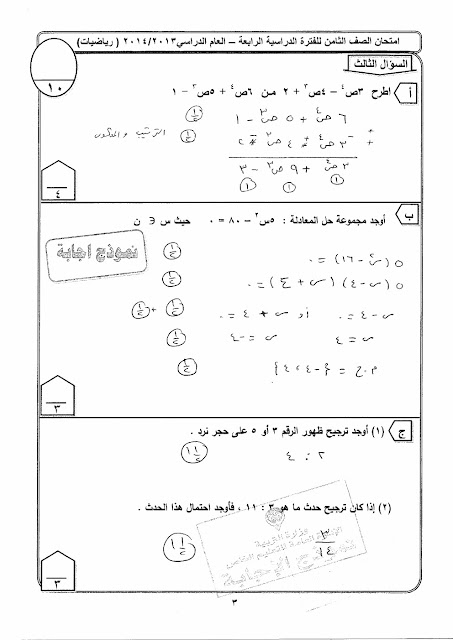 امتحان الصف الثامن للفترة الدراسية الرابعة – العام الدراسي ٢٠١٣/٢٠١٤ ( رياضيات )
السؤال الثالث
١٠
أ اطرح ٣ص٤ – ٤ص٢ + ٢ من ٦ص٤ + ٥ص٢ – ١
٦ص٤ + ٥ص٢ – ١
٣ص٤ ٤ص٢ ٢
٣ص٤ + ٩ص٢ – ٣
١ ١ ١
٤
ب أوجد مجموعة حل المعادلة : ٥س٢ – ٨٠ = ٠ حيث س ∈ ن
نموذج اجابة
٥ (س٢ – ١٦) = ٠
٥ (س – ٤) (س + ٤) = ٠
س – ٤ = ٠ أو س + ٤ = ٠
س = ٤ س = –٤
م.ح = {–٤ ، ٤}
٣
ج (١) أوجد ترجيح ظهور الرقم ٣ أو ٥ على حجر نرد .
٢ : ٤
(٢) إذا كان ترجيح حدث ما هو ٣ : ١١ ، فأوجد احتمال هذا الحدث .
٣
١٤
وزارة التربية
٣
٣